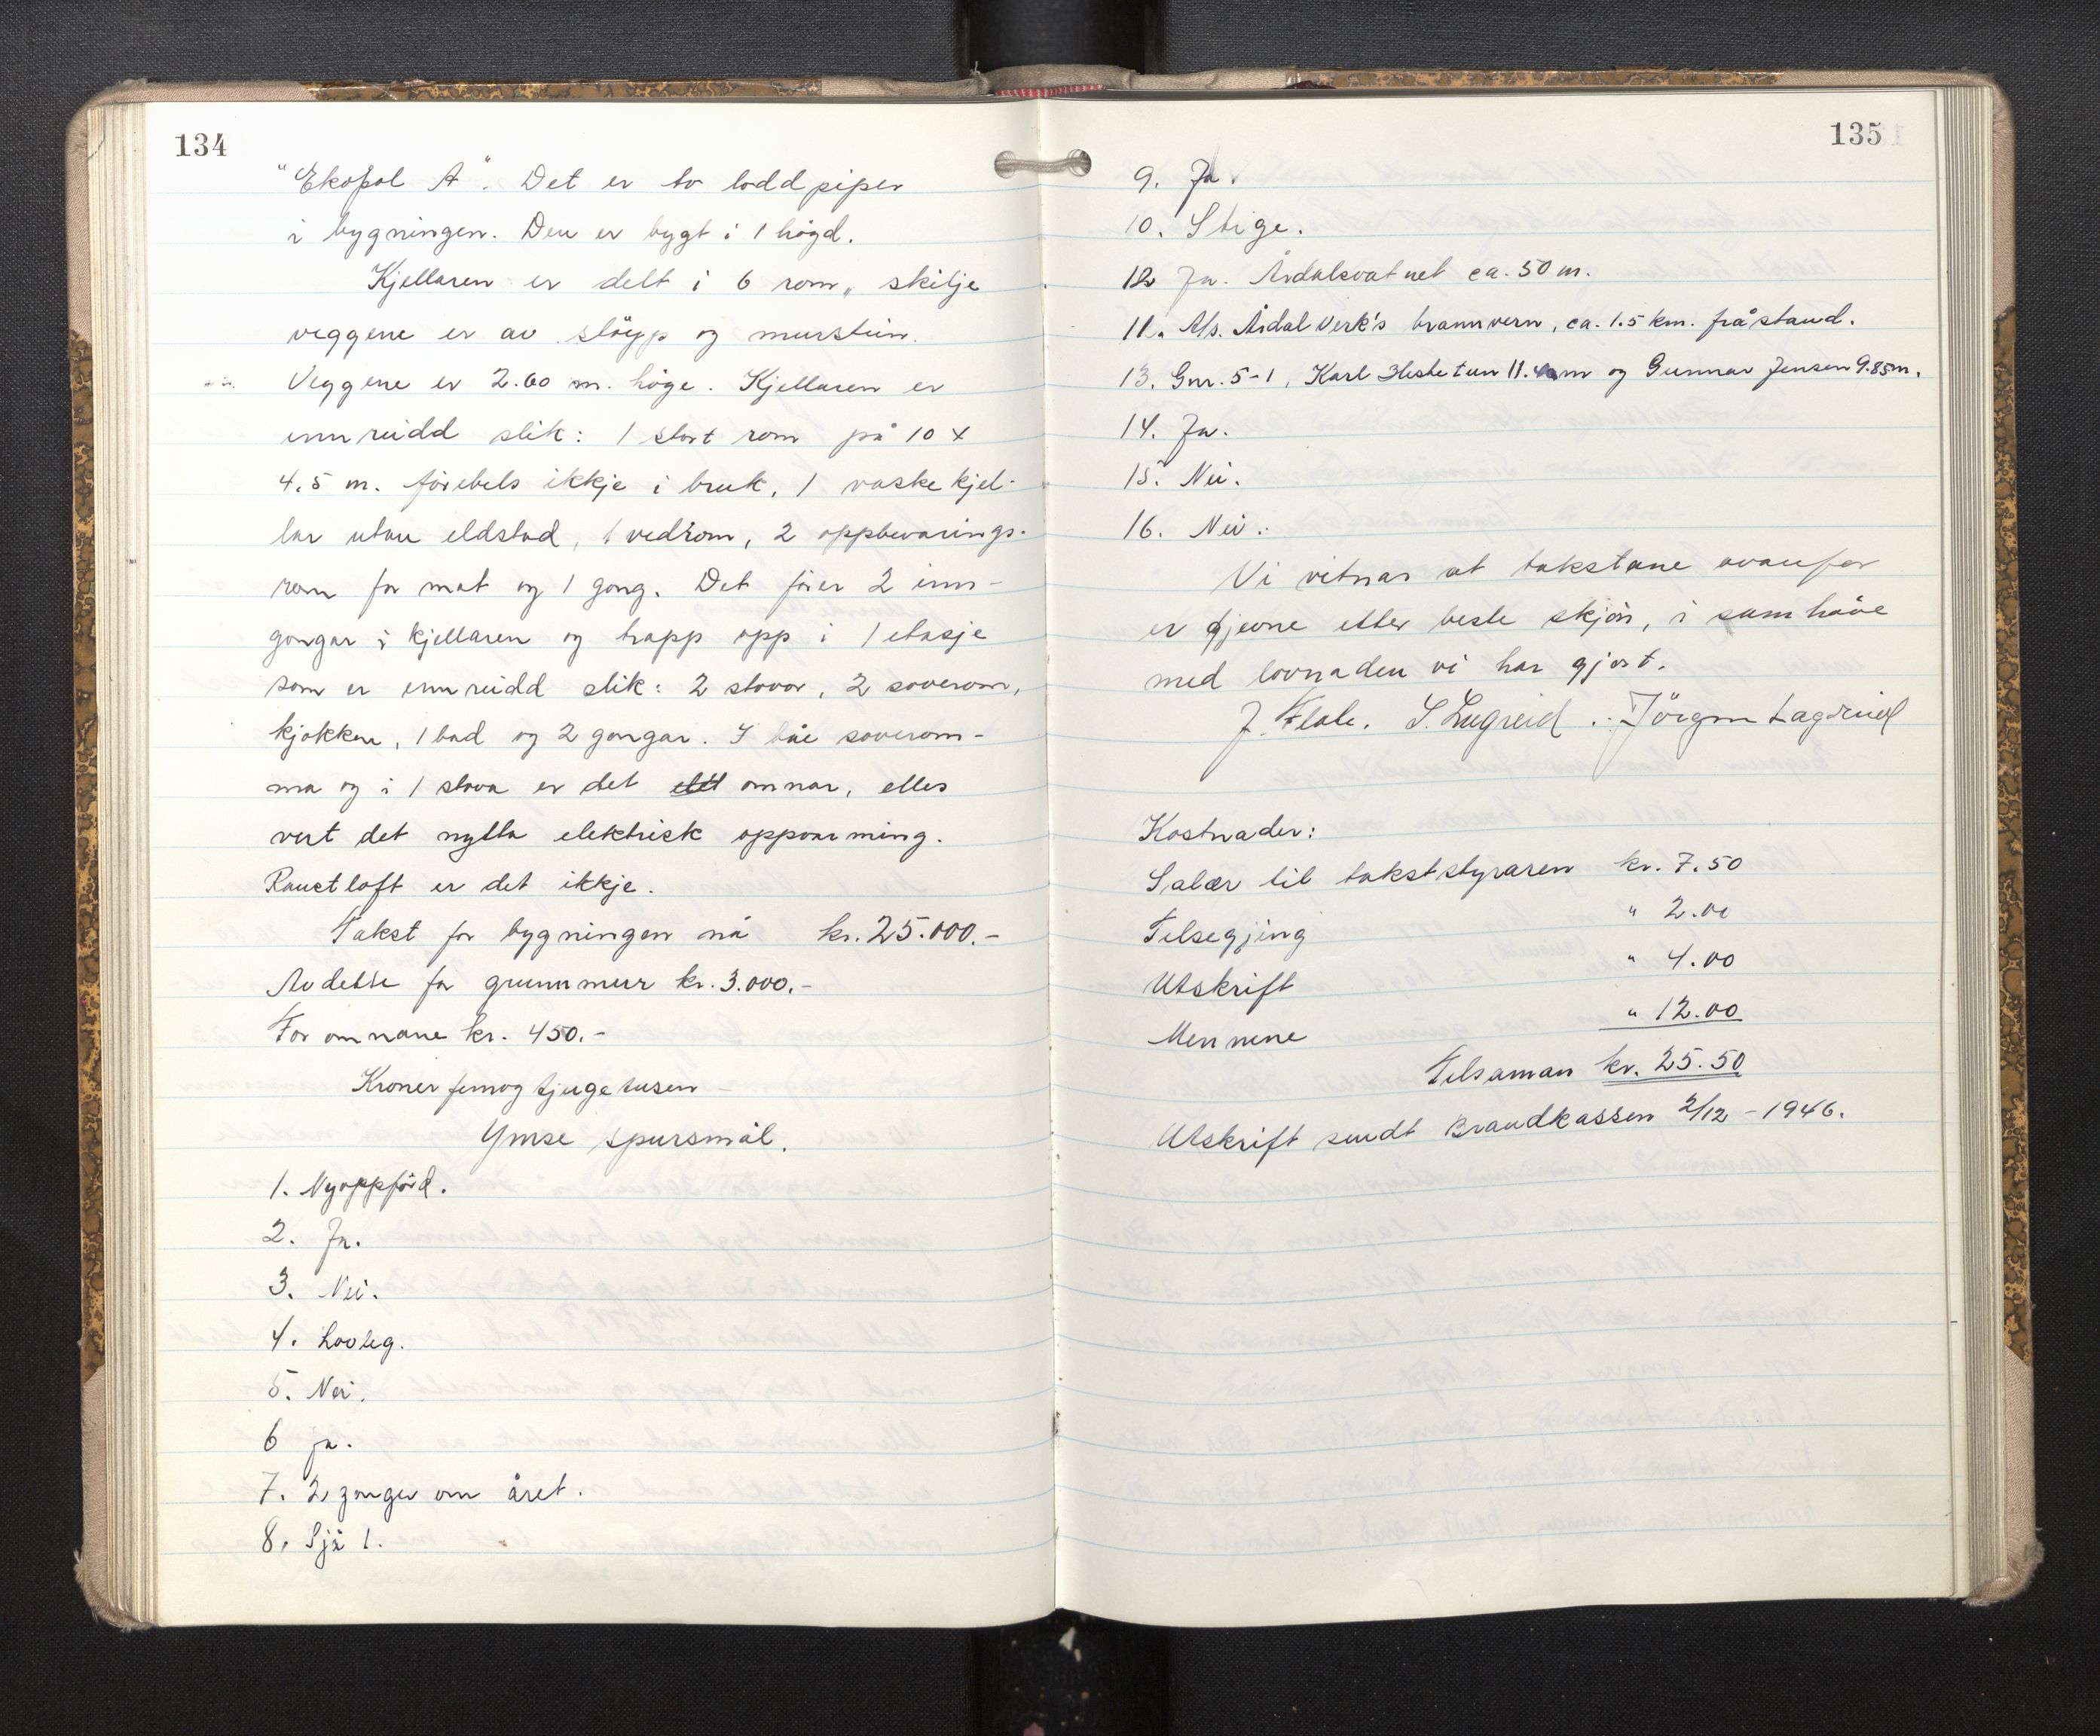 134
"Ekopol A". Det er to loddpiper
i bygningen. Den er bygt i 1 högd.
Kjellaren er delt i 6 rom, skilje
veggene er av slöyp og murstein.
Veggene er 2.60 m. höge. Kjellaren er
innreidd slik: 1 stort rom på 10 x
4.5 m. förebels ikkje i bruk, 1 vaskekjel-
lar utan eldstad, 1 vedrom, 2 oppbevarings-
rom for mat og 1 gong. Det förer 2 inn-
gongar i kjellaren og trapp opp i 1 etasje
som er innreidd slik: 2 stovor, 2 soverom,
kjøkken, 1 bad og 2 gongar. I båe soverom-
ma og i 1 stova er det omnar, elles
vert det nytta elektrisk oppvarming.
Raustloft er det ikkje.
Takst for bygningen nå kr. 25.000.-
Av dette for grunnmur kr. 3.000.-
For omnane kr. 450.-
Kroner femogtjugetusen
Ymse spursmål.
1. Nyoppförd.
2. Ja.
3. Nei.
4. Lovleg.
5. Nei.
6 ja.
7. 2 gonger om året.
8. Sjå 1.
135
9. Ja.
10. Stige.
12 Ja. Årdalsvatnet ca. 50 m.
11. A/s. Årdal Verk's brannvern, ca. 1.5 km. fråstand.
13. Gnr. 5-1, Karl Hestetun 11.40m og Gunnar Jensen 9.85m.
14. Ja.
15. Nei.
16. Nei.
Vi vitnar at takstane ovanfor
er gjevne etter beste skjön, i samhöve
med lovnaden vi har gjort.
J. Flate. S. Lægreid. Jörgen Lægreid
Kostnader:
Salær til takststyraren kr. 7.50
Tilsegjing " 2.00
Utskrift " 4.00
Mennene " 12.00
Tilsaman kr. 25.50
Utskrift sendt Brandkassen 2/12 - 1946.